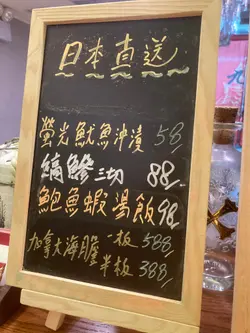 日本直送
螢光魷魚沖漬 58/
縞鰺三切 88/
鮑魚蝦湯飯 98/
加拿大海膽 一板 588/
半板 388/